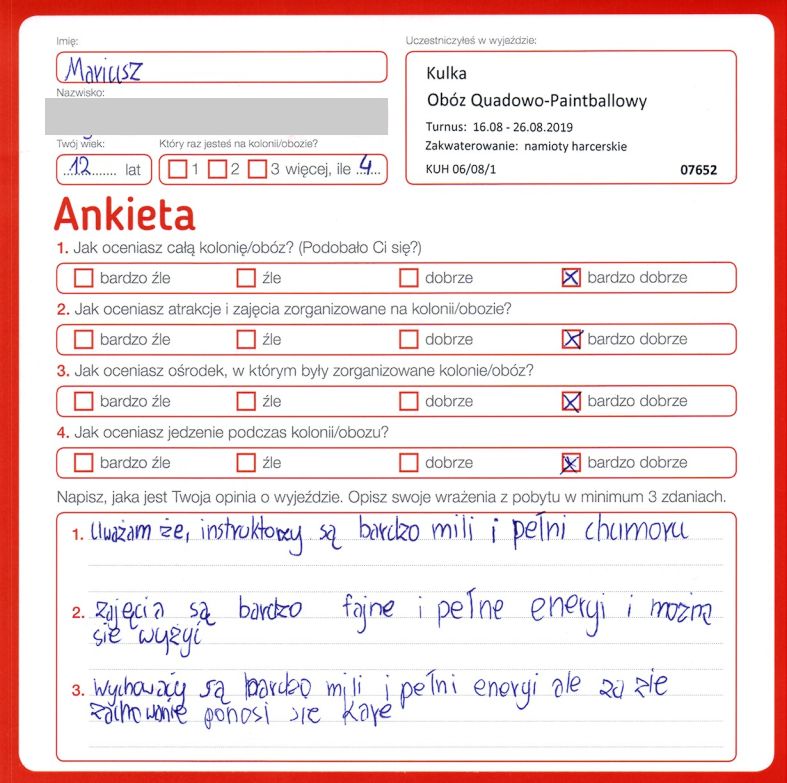 Imię:
Uczestniczyłeś w wyjeździe:
Mariusz
Kulka
Nazwisko:
Obóz Quadowo-Paintballowy
Turnus: 16.08 - 26.08.2019
Twój wiek:
Który raz jesteś na kolonii/obozie?
Zakwaterowanie: namioty harcerskie
12 lat
1 2 3 więcej, ile 4
KUH 06/08/1 07652
Ankieta
1. Jak oceniasz całą kolonię/obóz? (Podobało Ci się?)
bardzo źle źle dobrze bardzo dobrze
2. Jak oceniasz atrakcje i zajęcia zorganizowane na kolonii/obozie?
bardzo źle źle dobrze bardzo dobrze
3. Jak oceniasz ośrodek, w którym były zorganizowane kolonie/obóz?
bardzo źle źle dobrze bardzo dobrze
4. Jak oceniasz jedzenie podczas kolonii/obozu?
bardzo źle źle dobrze bardzo dobrze
Napisz, jaka jest Twoja opinia o wyjeździe. Opisz swoje wrażenia z pobytu w minimum 3 zdaniach.
1. Uważam że, instruktorzy są bardzo mili i pełni chumoru
2. zajęcia są bardzo fajne i pełne energi i można
sie wyżyć
3. wychowawcy są bardzo mili i pełni energi ale za złe
zachowanie ponosi sie kare